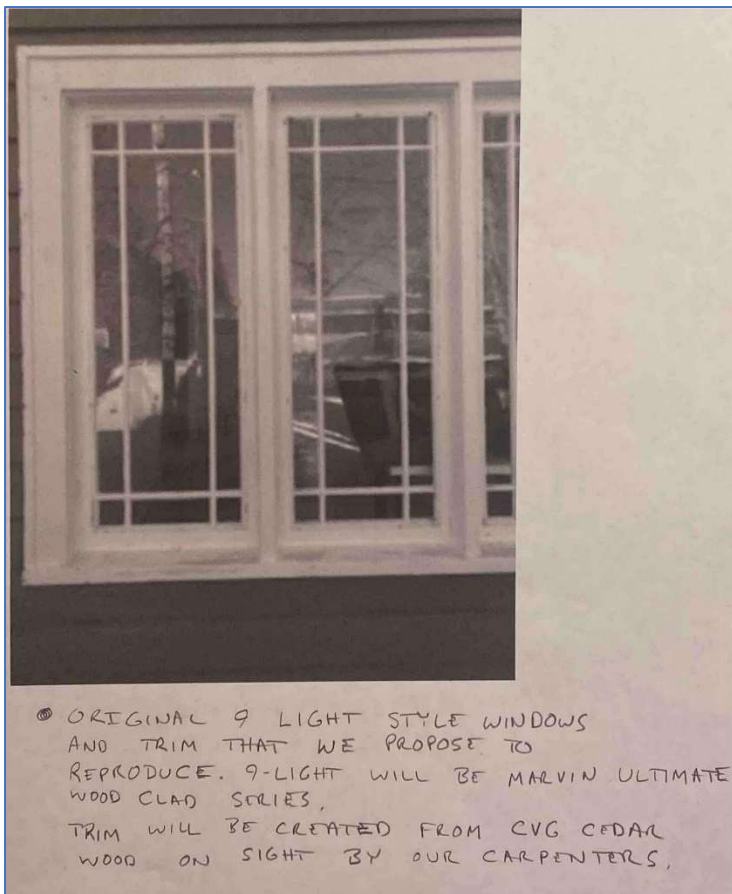 ORIGINAL 9 LIGHT STYLE WINDOWS
AND TRIM THAT WE PROPOSE TO
REPRODUCE. 9-LIGHT WILL BE MARVIN ULTIMATE
WOOD CLAD SERIES.
TRIM WILL BE CREATED FROM CVG CEDAR
WOOD ON SIGHT BY OUR CARPENTERS.